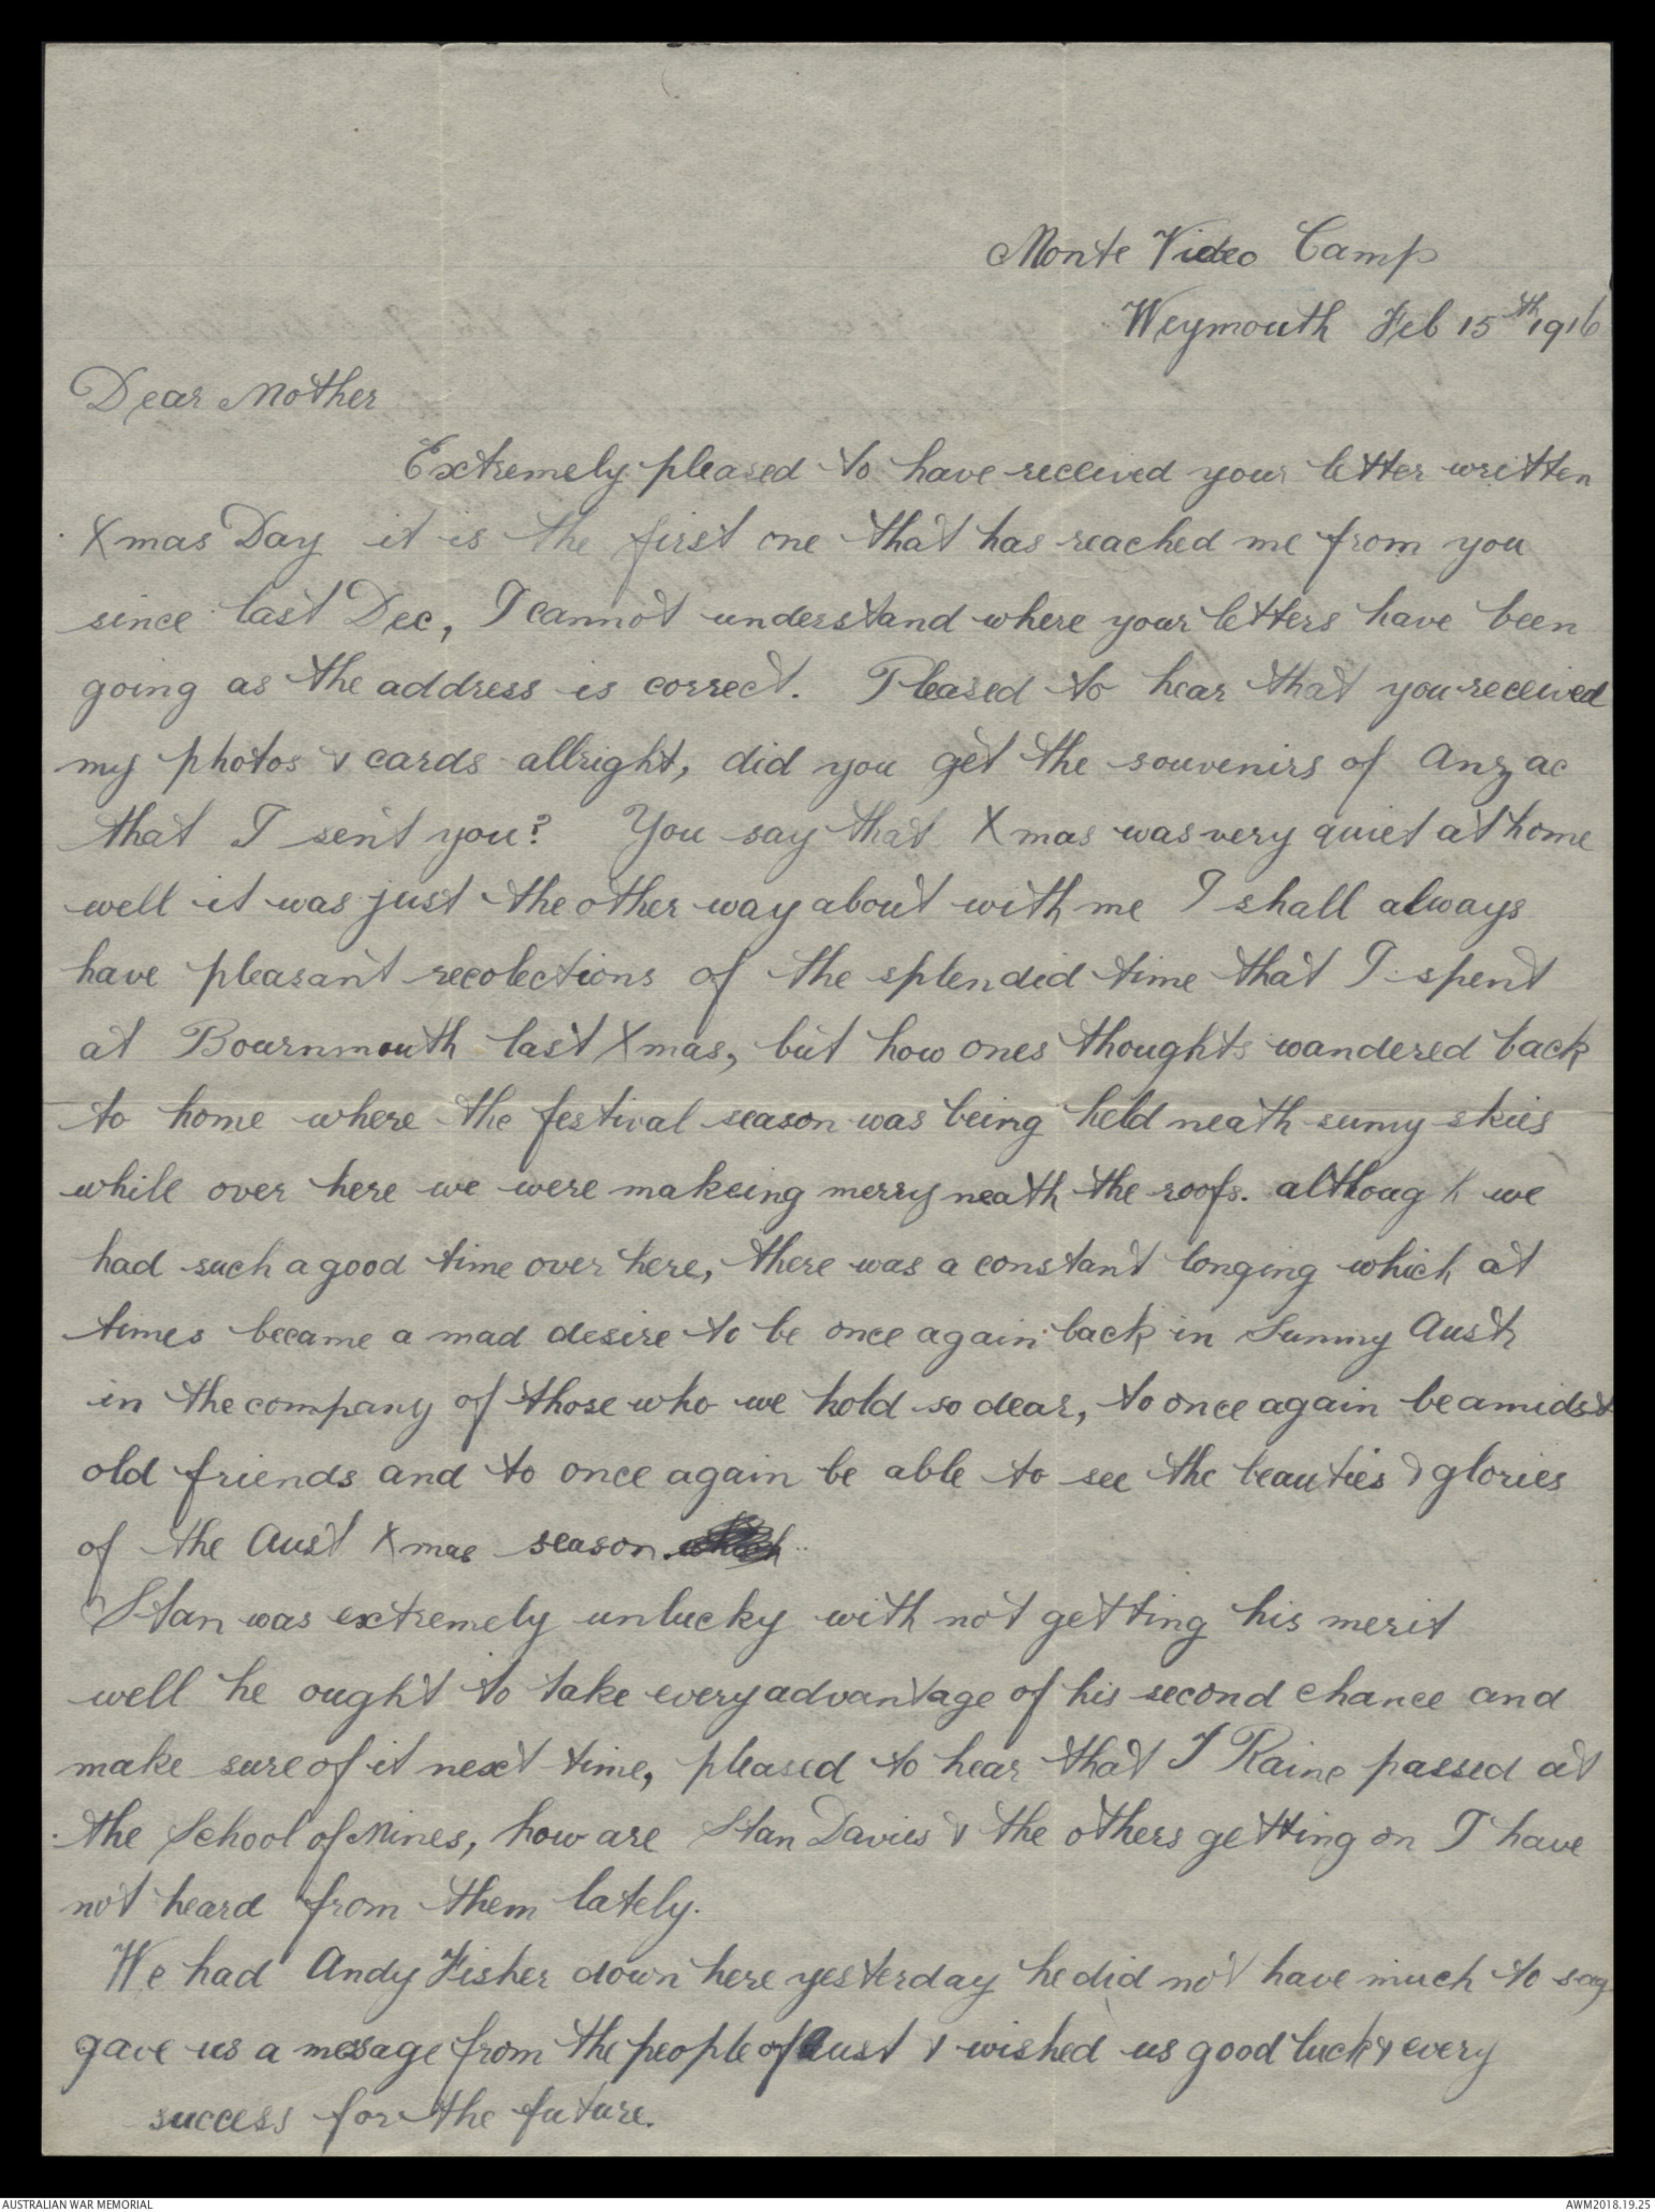 Monte Video Camp
Weymouth Feb 15th 1916
Dear Mother
Extremely pleased to have received your letter written
Xmas Day it is the first one that has reached me from you
since last Dec, I cannot understand where your letters have been
going as the address is correct. Pleased to hear that you received
my photos & cards allright, did you get the souvenirs of Anzac
that I sent you? You say that Xmas was very quiet at home
well it was just the other way about with me I shall always
have pleasant recolections of the splendid time that I spent
at Bournmouth last Xmas, but how ones thoughts wandered back
to home where the festival season was being held neath sunny skies
while over here we were makeing merry neath the roofs. although we
had such a good time over here, there was a constant longing which at
times became a mad desire to be once again back in Sunny Aust
in the company of those who we hold so dear, to once again be amidst
old friends and to once again be able to see the beauties & glories
of the Aust Xmas season.
Stan was extremely unlucky with not getting his merit
well he ought to take every advantage of his second chance and
make sure of it next time, pleased to hear that J Raine passed at
the School of Mines, how are Stan Davies & the others getting on I have
not heard from them lately.
We had Andy Fisher down here yesterday he did not have much to say
gave us a message from the people of Aust & wished us good luck & every
success for the future.
AUSTRALIAN WAR MEMORIAL
AWM2018.19.25